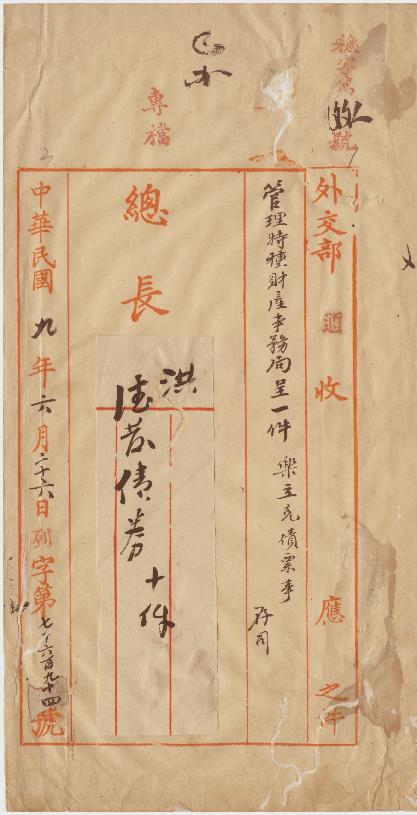 號
專檔
外交部
收
應
之件
管理特種財產事務局呈一件 樂立克債票事
存司
總長
洪
債券十件
中華民國九年六月二十六日列字第七千六百九十四號